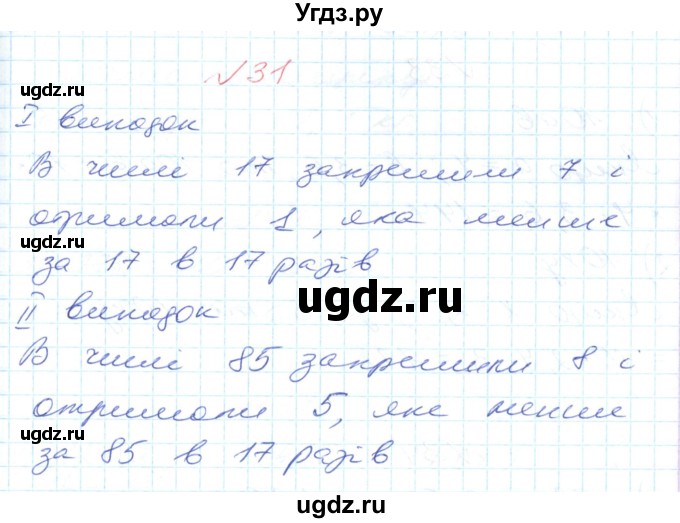 Угдз.ру
№31
I випадок
ugdz.ru
В числі 17 закреслили 7 і
отримали 1, яка менше
ugdz.ru
за 17 в 17 разів
ugdz.ru
II випадок
ugdz.ru
В числі 85 закреслили 8 і
отримали 5, яке менше
ugdz.ru
за 85 в 17 разів
ugdz.ru